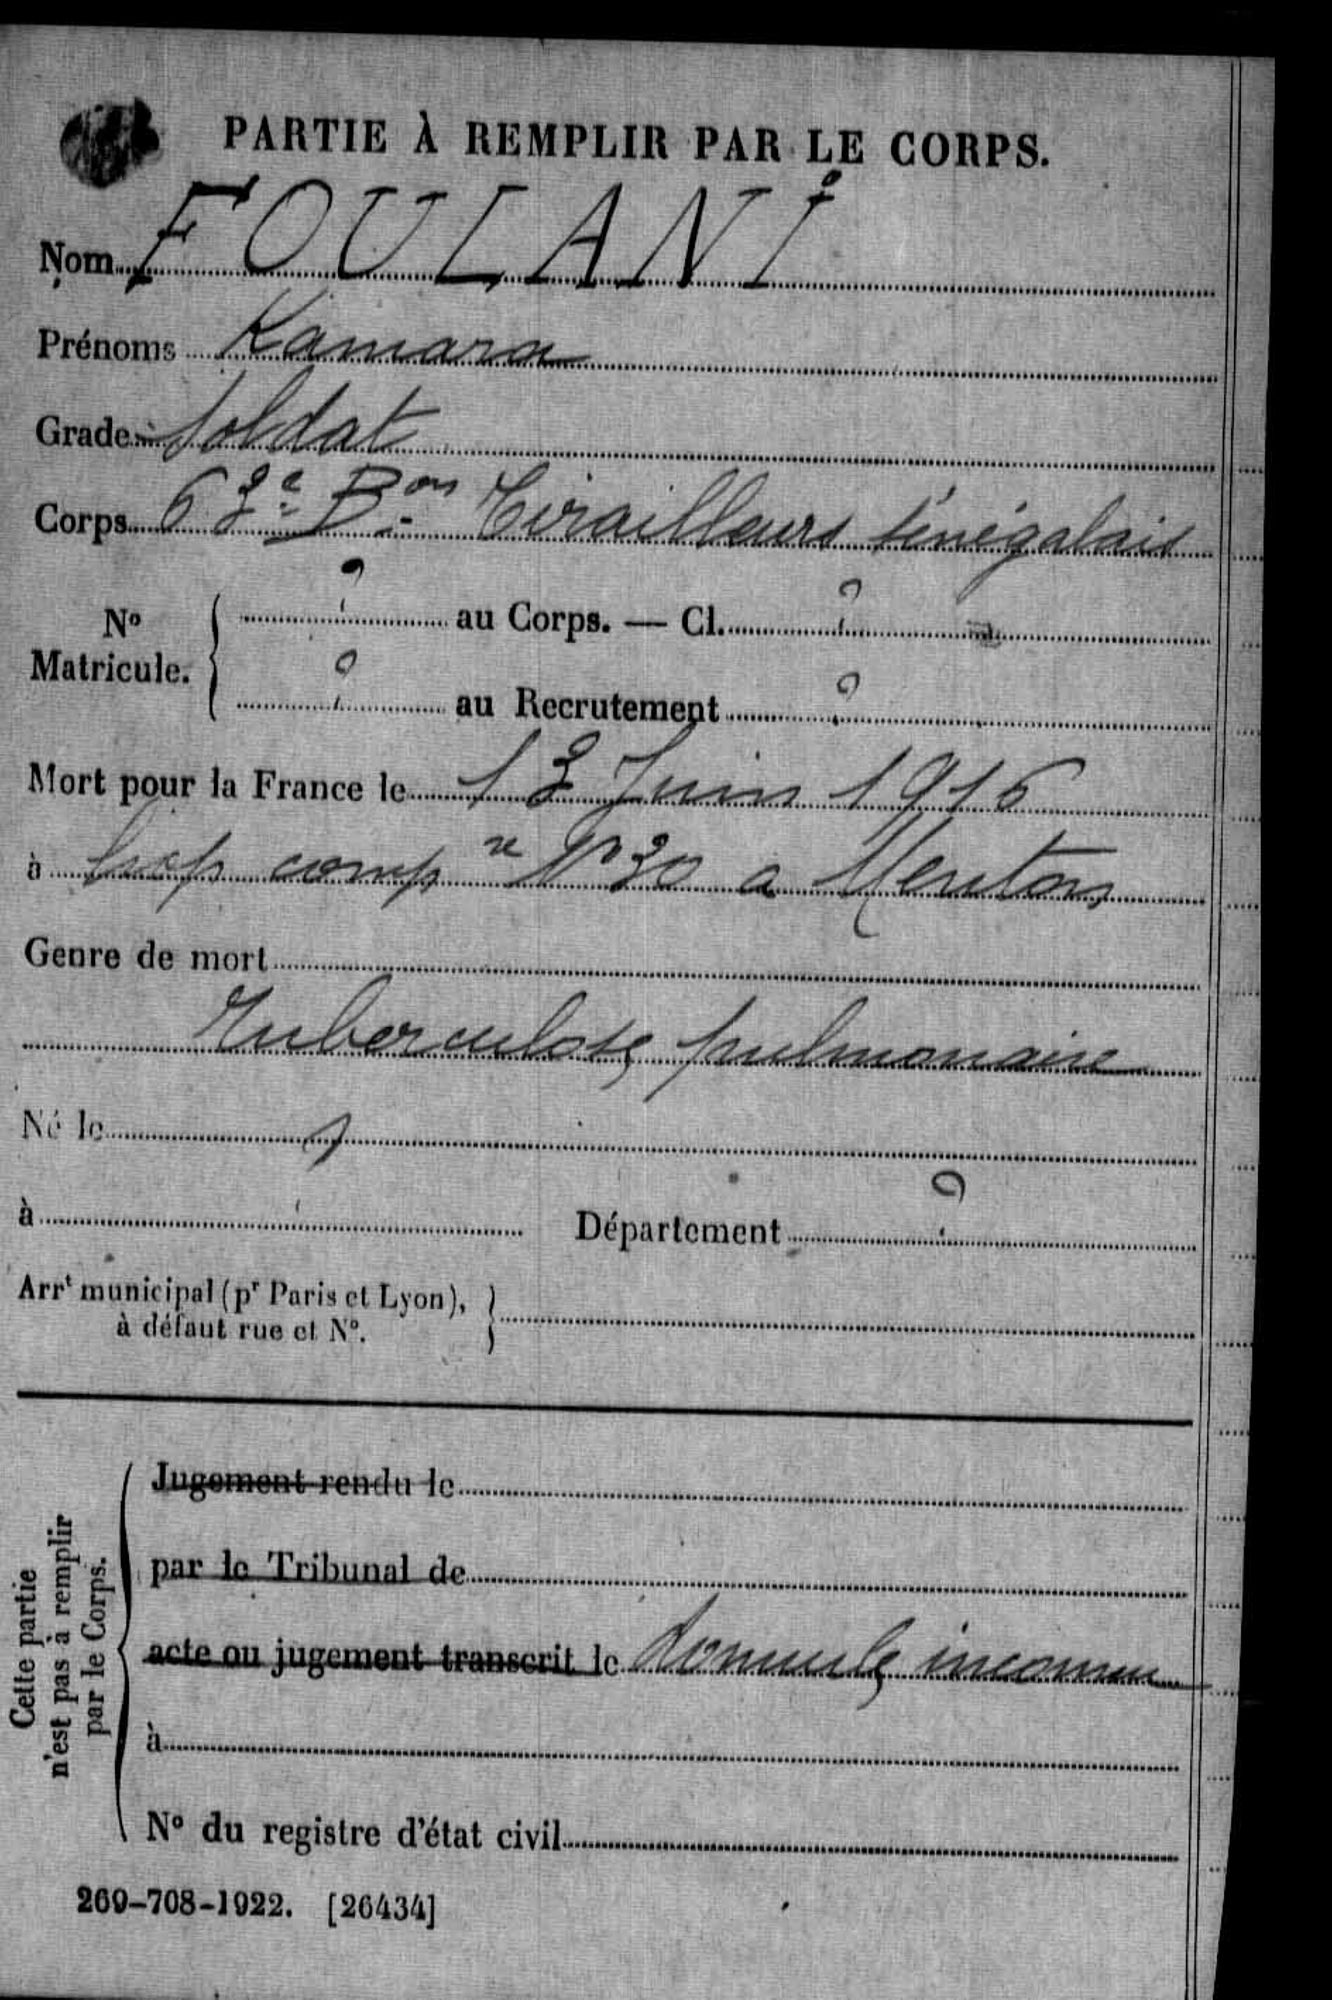 PARTIE À REMPLIR PAR LE CORPS.
Nom FOULANI
Prénoms Kamara
Grade Soldat
Corps 63e Bon Tirailleurs sénégalais
No Matricule. { ? au Corps. — Cl. ?
? au Recrutement ?
Mort pour la France le 13 Juin 1916
à hop compre No 30 a Menton
Genre de mort
Tuberculose pulmonaire
Né le ?
à Département ?
Arrt municipal (pr Paris et Lyon), }
à défaut rue et No.
Cette partie n'est pas à remplir par le Corps.
Jugement rendu le
par le Tribunal de
acte ou jugement transcrit le Domicile inconnu
à
No du registre d'état civil
269-708-1922. [26434]